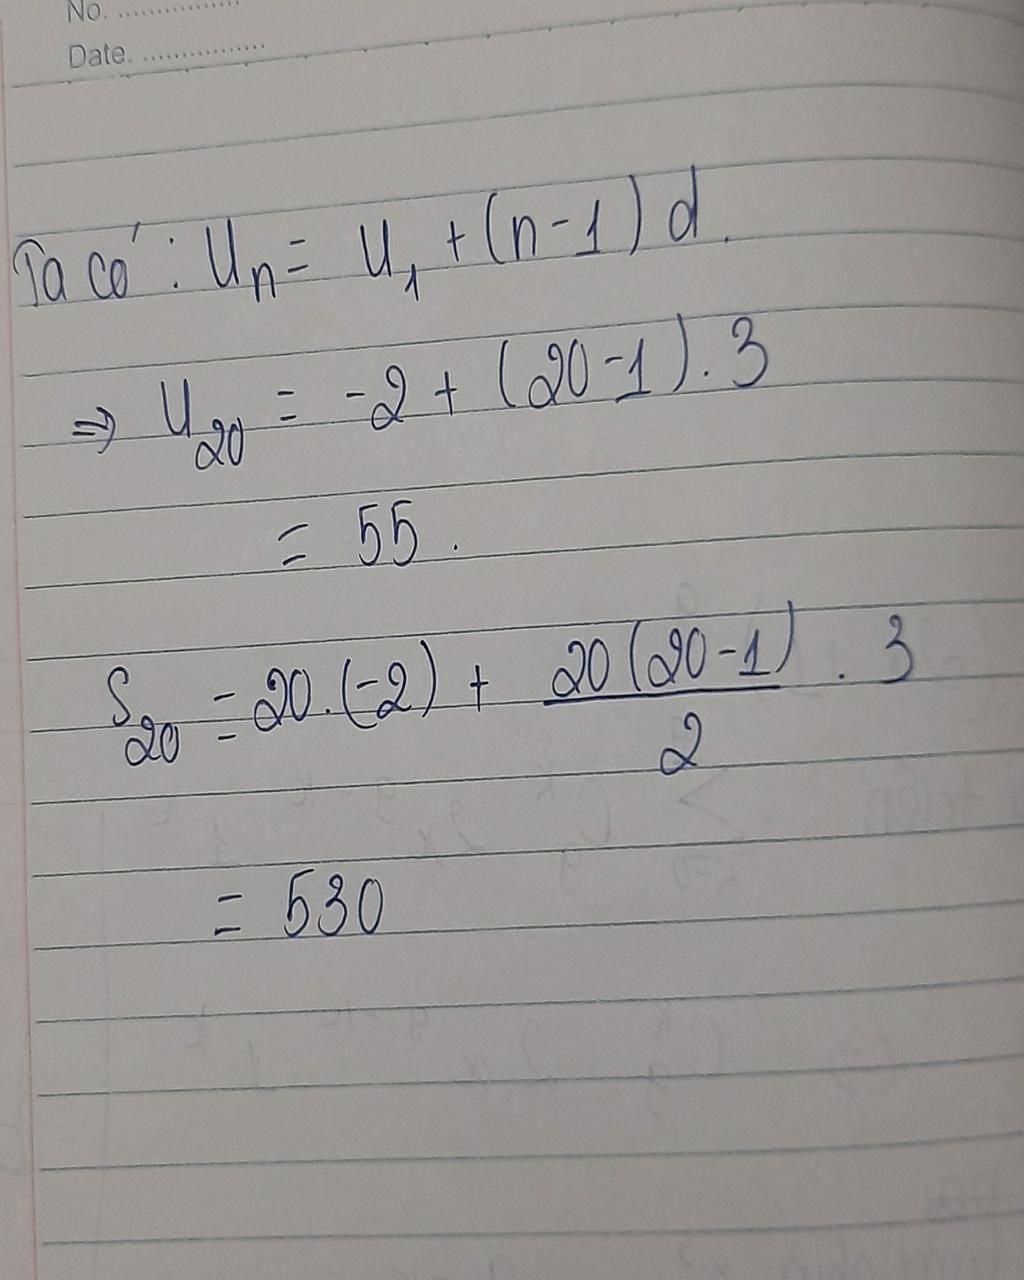 No. ..................
Date. ..................
Ta có : Uₙ = U₁ + (n-1) d.
⇒ U₂₀ = -2 + (20-1) . 3
= 55 .
S₂₀ = 20.(-2) + 20(20-1)/2 . 3
= 530